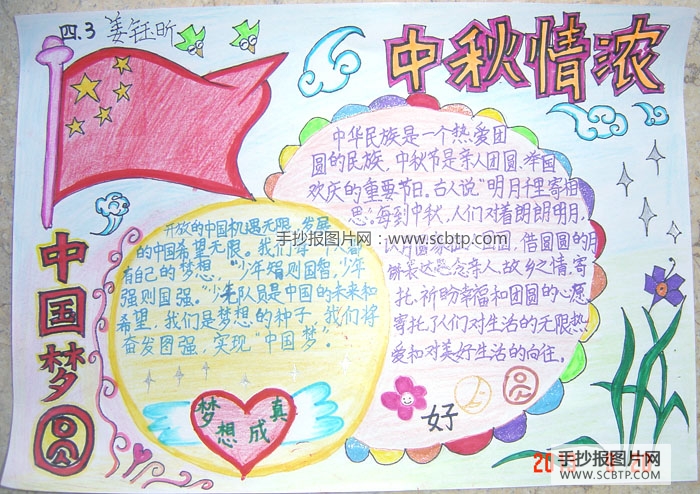 四.3 姜钰昕
中秋情浓
中华民族是一个热爱团
圆的民族,中秋节是亲人团圆、举国
欢庆的重要节日。古人说:"明月千里寄相
思。"每到中秋,人们对着朗朗明月,
借圆圆的月
表达思念亲人、故乡之情,寄
托、祈盼幸福和团圆的心愿
寄托了人们对生活的无限热
爱和对美好生活的向往。
好
中国梦
圆
开放的中国机遇无限,发展
的中国希望无限。我们每一个人都
有自己的梦想,"少年强则国智,少年
强则国强。"少先队员是中国的未来和
希望,我们是梦想的种子,我们将
奋发图强,实现"中国梦"。
梦想成真
手抄报图片网:www.scbtp.com
手抄报图片网
WWW.SCBTP.COM